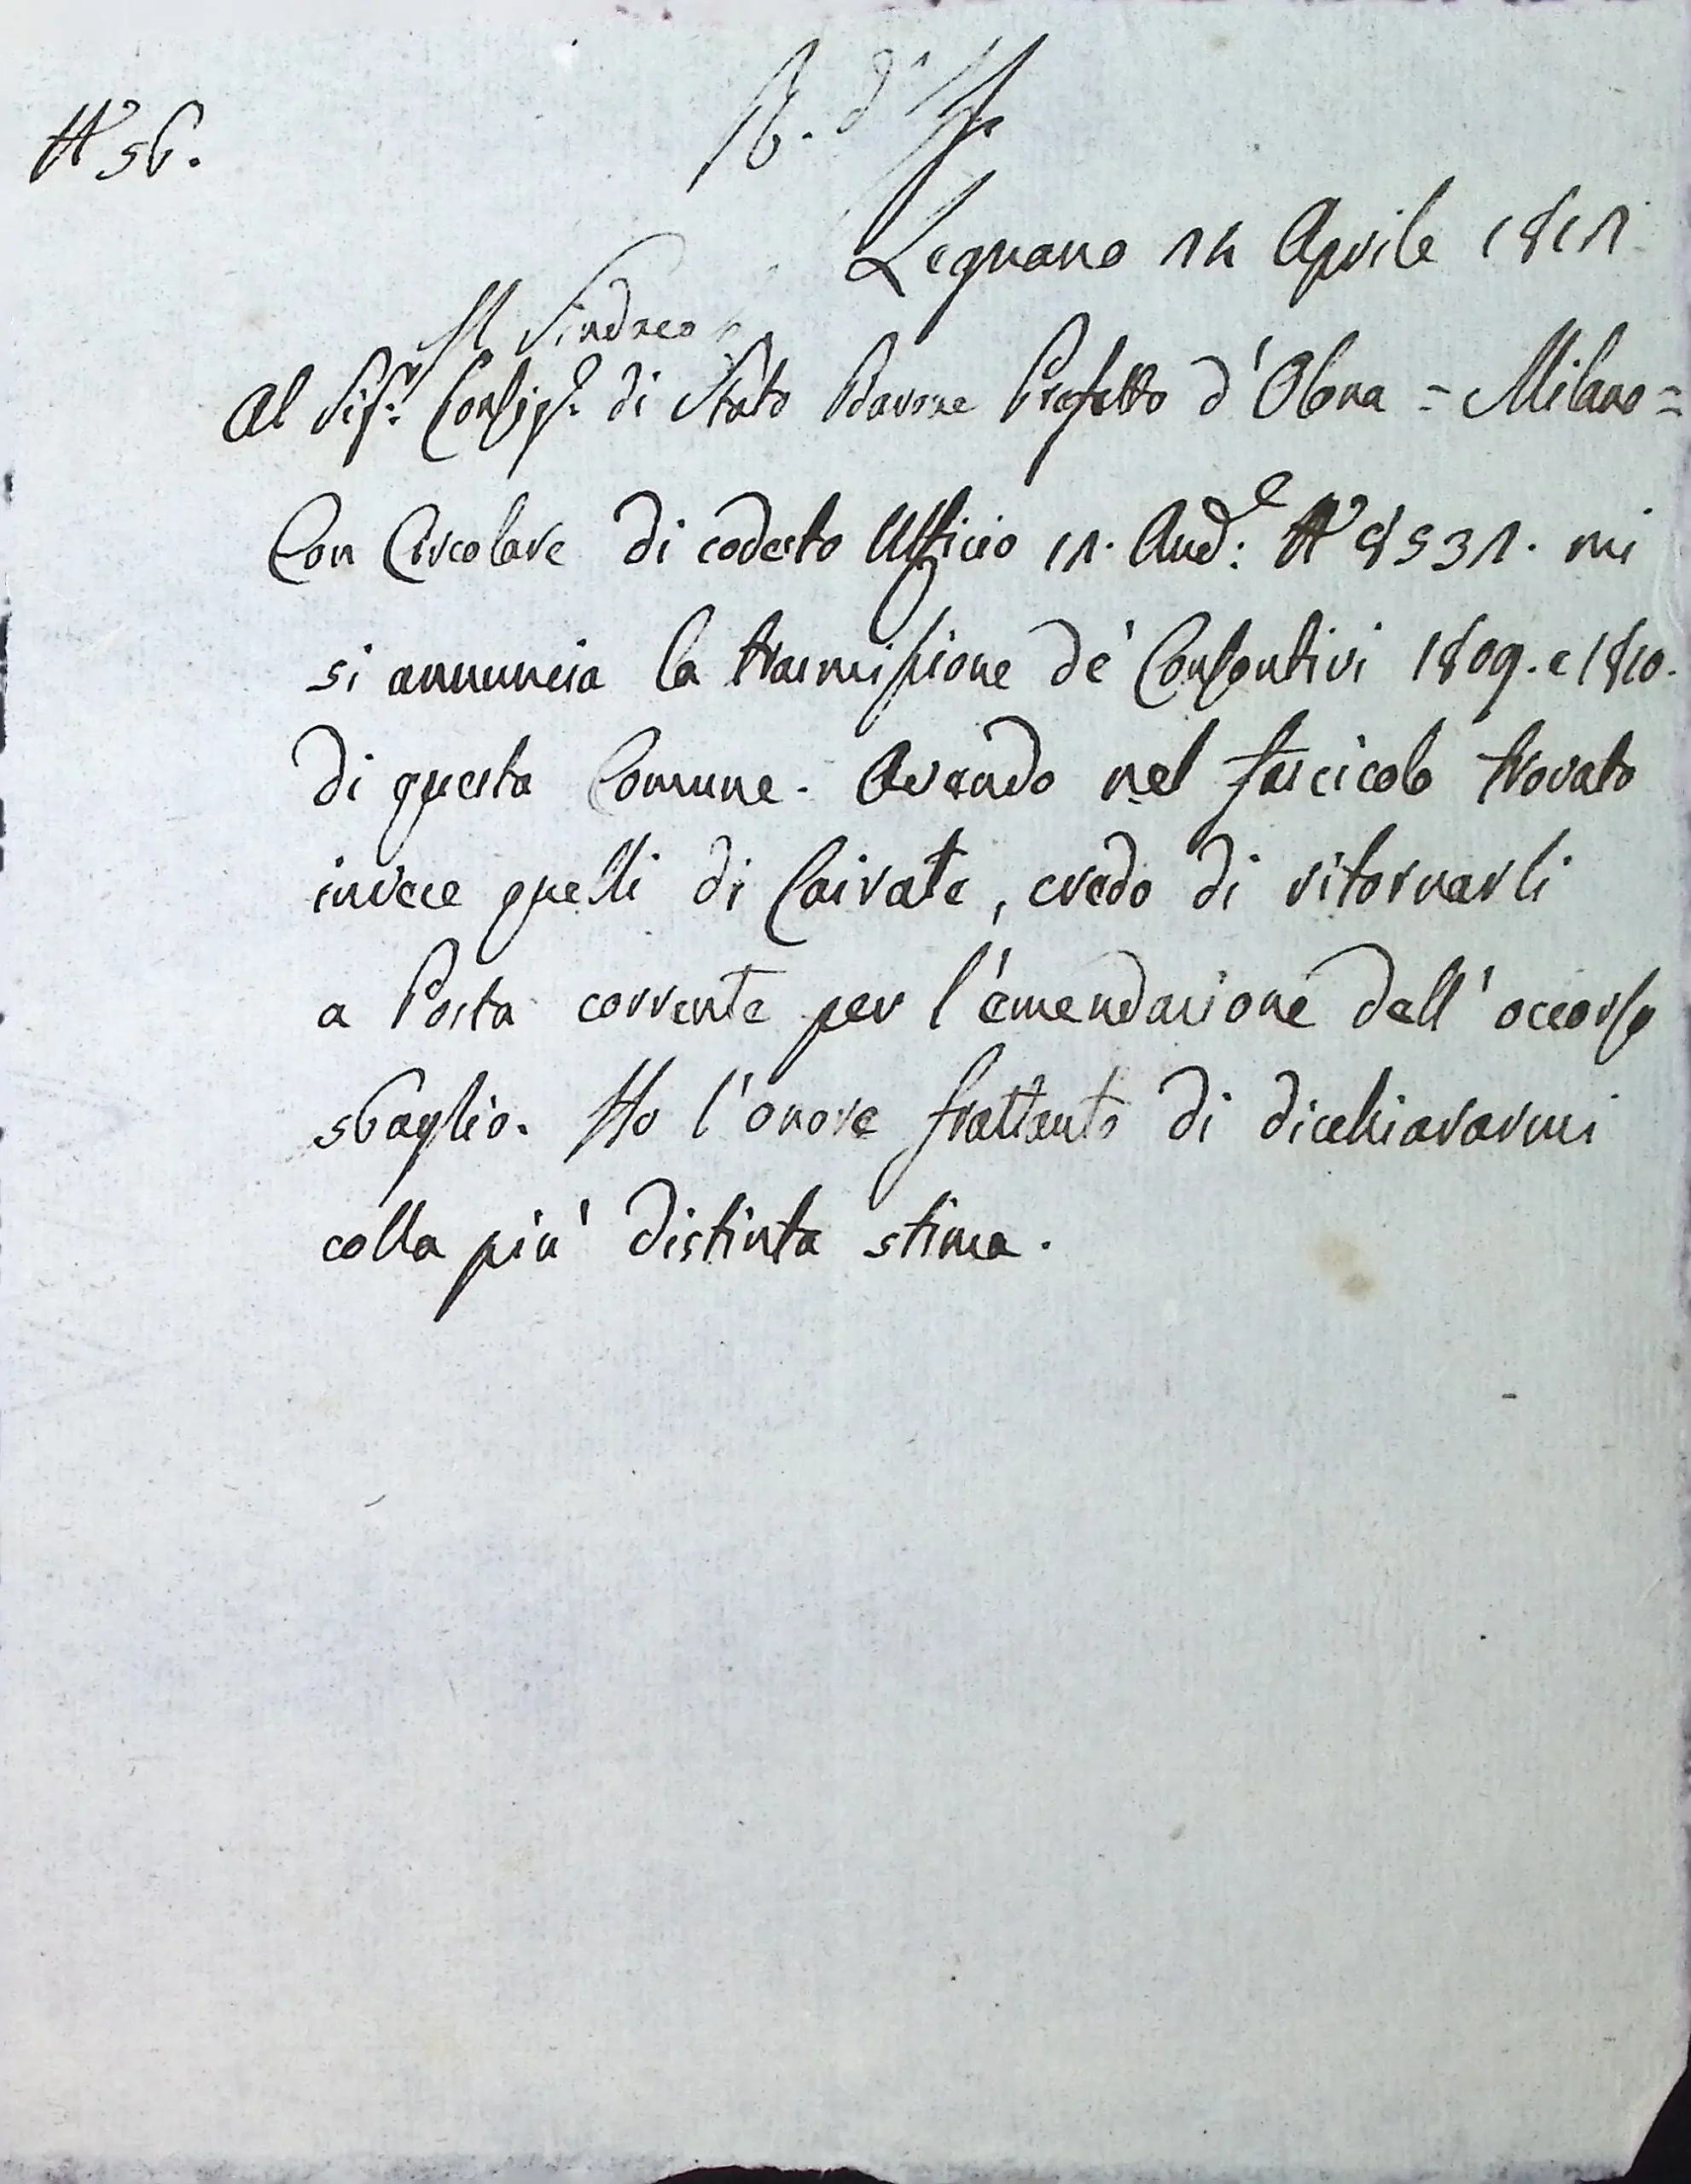 N° 56.
R. d' It.
Legnano 14 Aprile 1811.
Il Sindaco
Al Sig.r Consig.r di Stato Barone Prefetto d'Olona = Milano =
Con Circolare di codesto Ufficio 11. And.e N° 8531. mi
si annuncia la trasmissione de' Consontivi 1809. e 1810.
di questa Comune. Avendo nel fascicolo trovato
invece quelli di Cairate, credo di ritornarli
a Posta corrente per l'emendazione dell'occorso
sbaglio. Ho l'onore frattanto di dicchiararmi
colla più distinta stima.